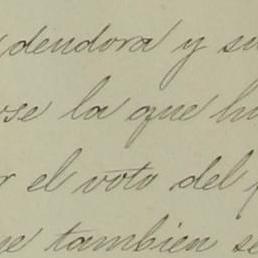 dendora y su
se la que hu
r el voto del p
ue tambien se